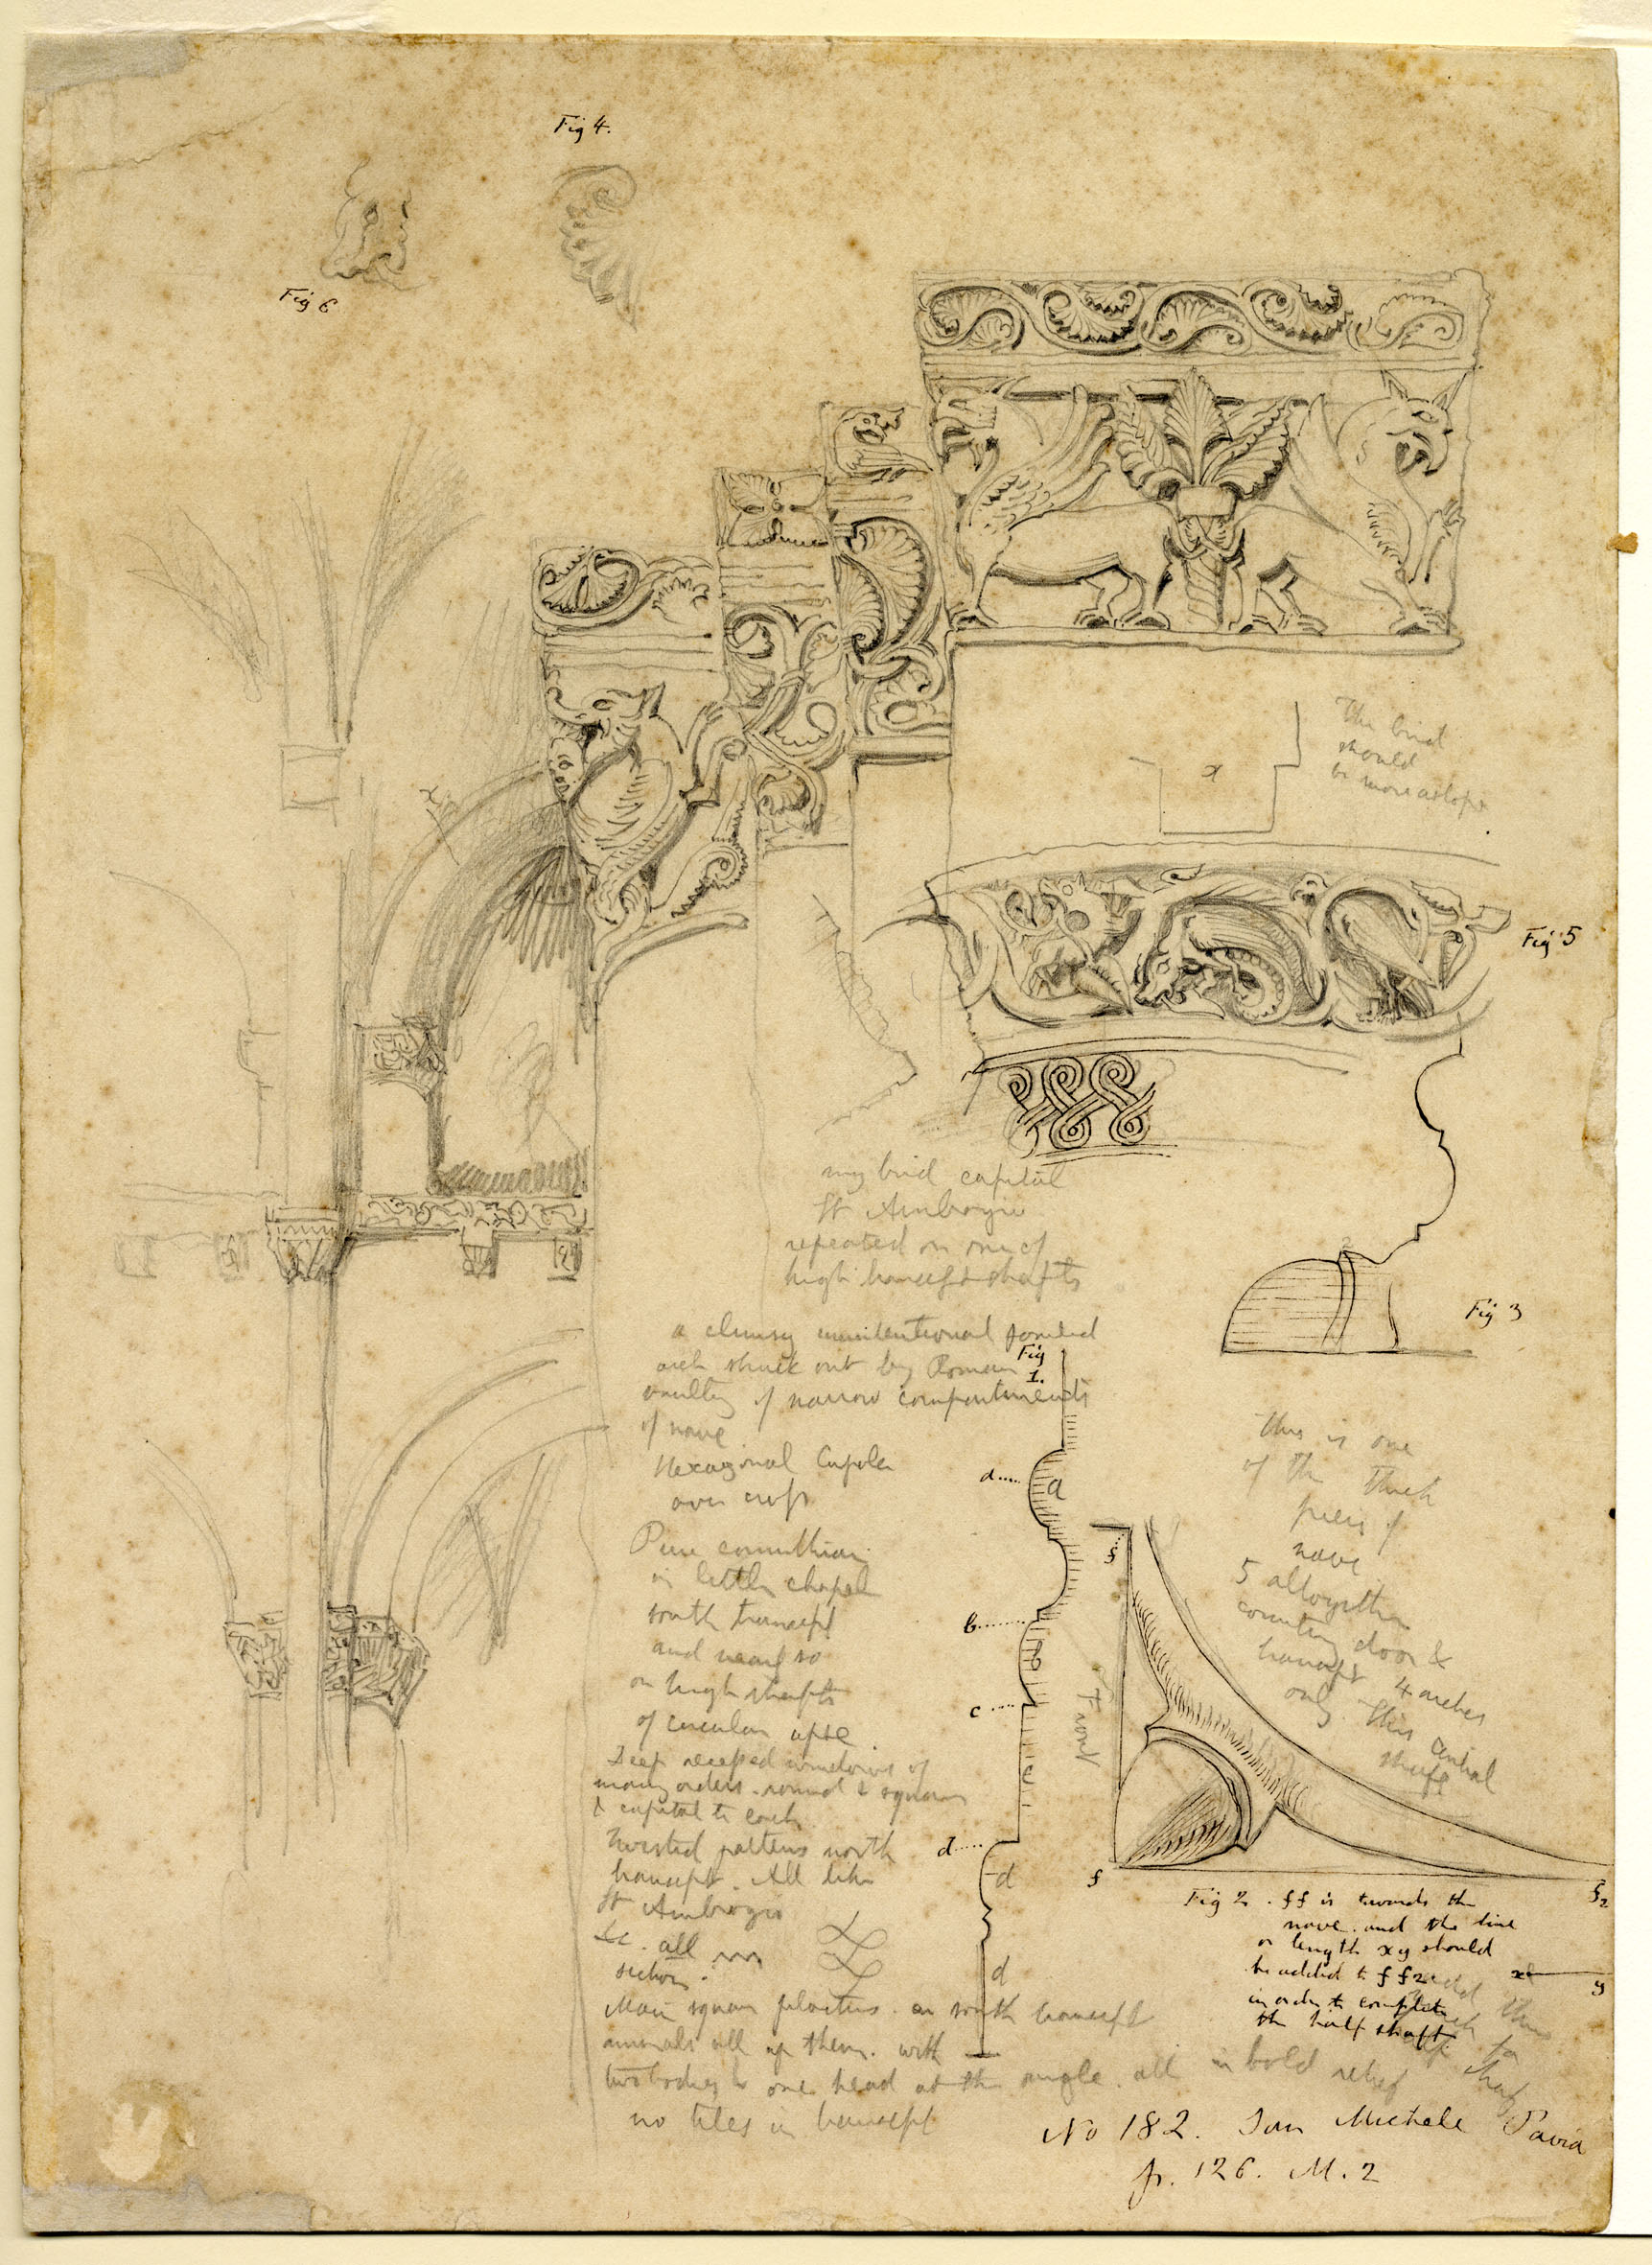 Fig 4.
Fig 6
The bird
should
be more aslope
x
x
Fig 5
my bird capital
St Ambrogio
repeated on one of
high transept shafts
2
Fig 3
a clumsy unintentional pointed
arch struck out by Roman
vaulting of narrow compartments
of nave
Hexagonal Cupola
over cross
Pure corinthian
in little chapel
south transept
and nearly so
on high shafts
of circular apse.
Deep recessed windows of
many orders. round & square
& capital to each
Twisted patterns north
transept. All like
St Ambrogio
&c. all
section.
Main square pilasters. on south transept
animals all up them. with
two bodies to one head at the angle. all in bold relief
no tiles in transept
Fig
1.
a
a
b
b
c
c
d
d
d
Front
this is one
of the thick
piers of
nave
5 altogether
counting door &
transept 4 arches
only this central
shaft
f
f
f2
Fig 2. ff is towards the
nave. and the line
or length xy should
be added to ff2
in order to complete
the half shaft.
x
y
No 182. San Michele Pavia
p. 126. M. 2